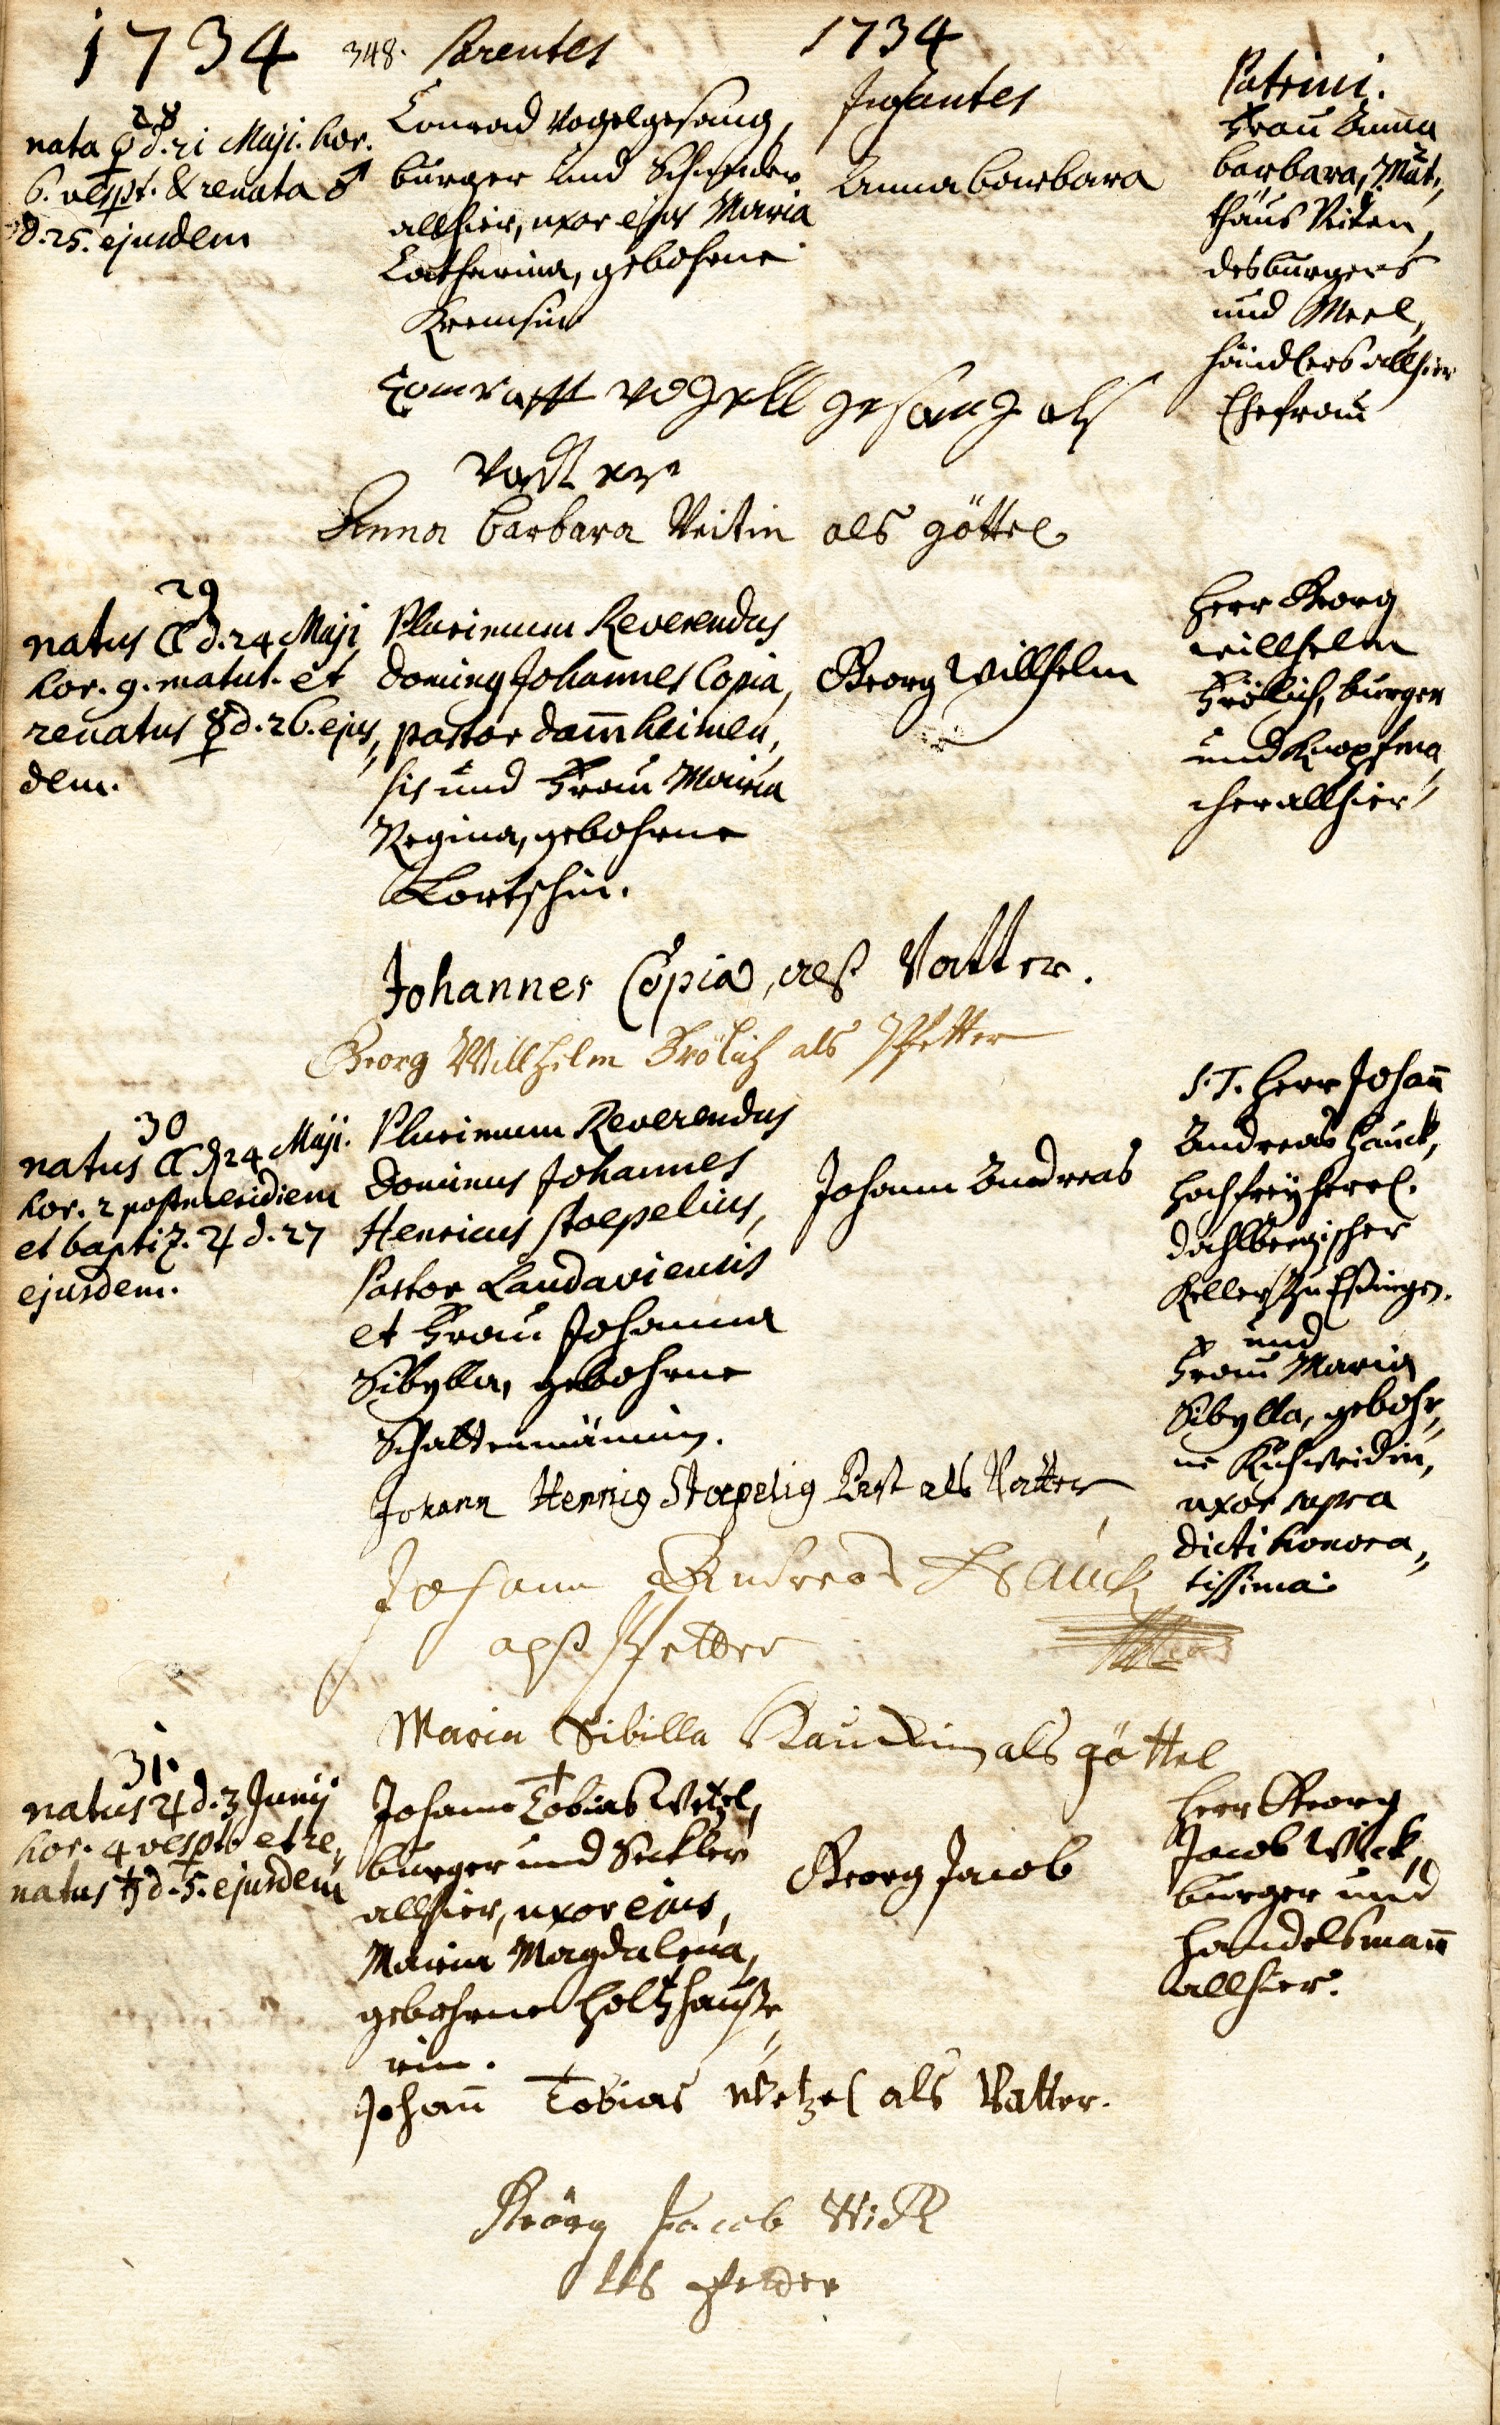 1734
348. Parentes
1734
Infantes
Patrini.
28
nata ♀ d. 21 Maji. hor.
6. vespt. & renata ♂
d. 25. ejusdem
Conrad Vogelgesang,
burger und Schneider
allhier, uxor ejus Maria
Catharina, gebohrne
Anna barbara
Frau Anna
barbara, Mat„
thäus Veiten,
des burgers
und Meel„
händlers allhier
Ehefrau
als
Vatter
Anna barbara Veitin als göttel
29
natus ☾ d. 24 Maji
hor. 9. matut. et
renatus ☿ d. 26. ejus„
dem.
Plurimum Reverendus
Dominus Johannes Copia,
pastor dam̄heimen„
sis und Frau Maria
Regina, gebohrne
Georg Willhelm
Herr Georg
willhelm
Frölich, burger
und Knopfma„
cher allhier
Johannes Copia, alß Vatter.
Georg Willhelm Frölich als Pfetter
30
natus ☾ d. 24 Maji.
hor. 2 postmeridiem
et baptiz. ♃ d. 27
ejusdem.
Plurimum Reverendus
Dominus Johannes
Henricus Stoepelius,
Pastor Landaviensis
et Frau Johanna
Sibylla, gebohrne
Schattenmännin.
Johann Andreas
S. T. Herr Johan̄
Andreas Hauck,
hochfreyherrl.
dahlbergischer
Keller zu Eßingen.
und
Frau Maria
Sibylla, gebohr„
ne
uxor supra
dicti honora„
tissima
Johann Henrig Stoepelig Past als Vatter
Johann Andreas Hauck
alß Pfetter
Maria Sibilla Hauckin als göttel
31.
natus ♃ d. 3 Junij
hor. 4 vespt. et re„
natus ♄ d. 5. ejusdem
Johann Tobias Wetzel,
burger und Seckler
allhier, uxor ejus,
Maria Magdalena,
gebohrne Holtzhauße„
rin.
Georg Jacob
Herr Georg
Jacob Wick,
burger und
Handelsman̄
allhier.
Johan̄ Tobias Wetzel als Vatter.
Georg Jacob Wick
als Petter